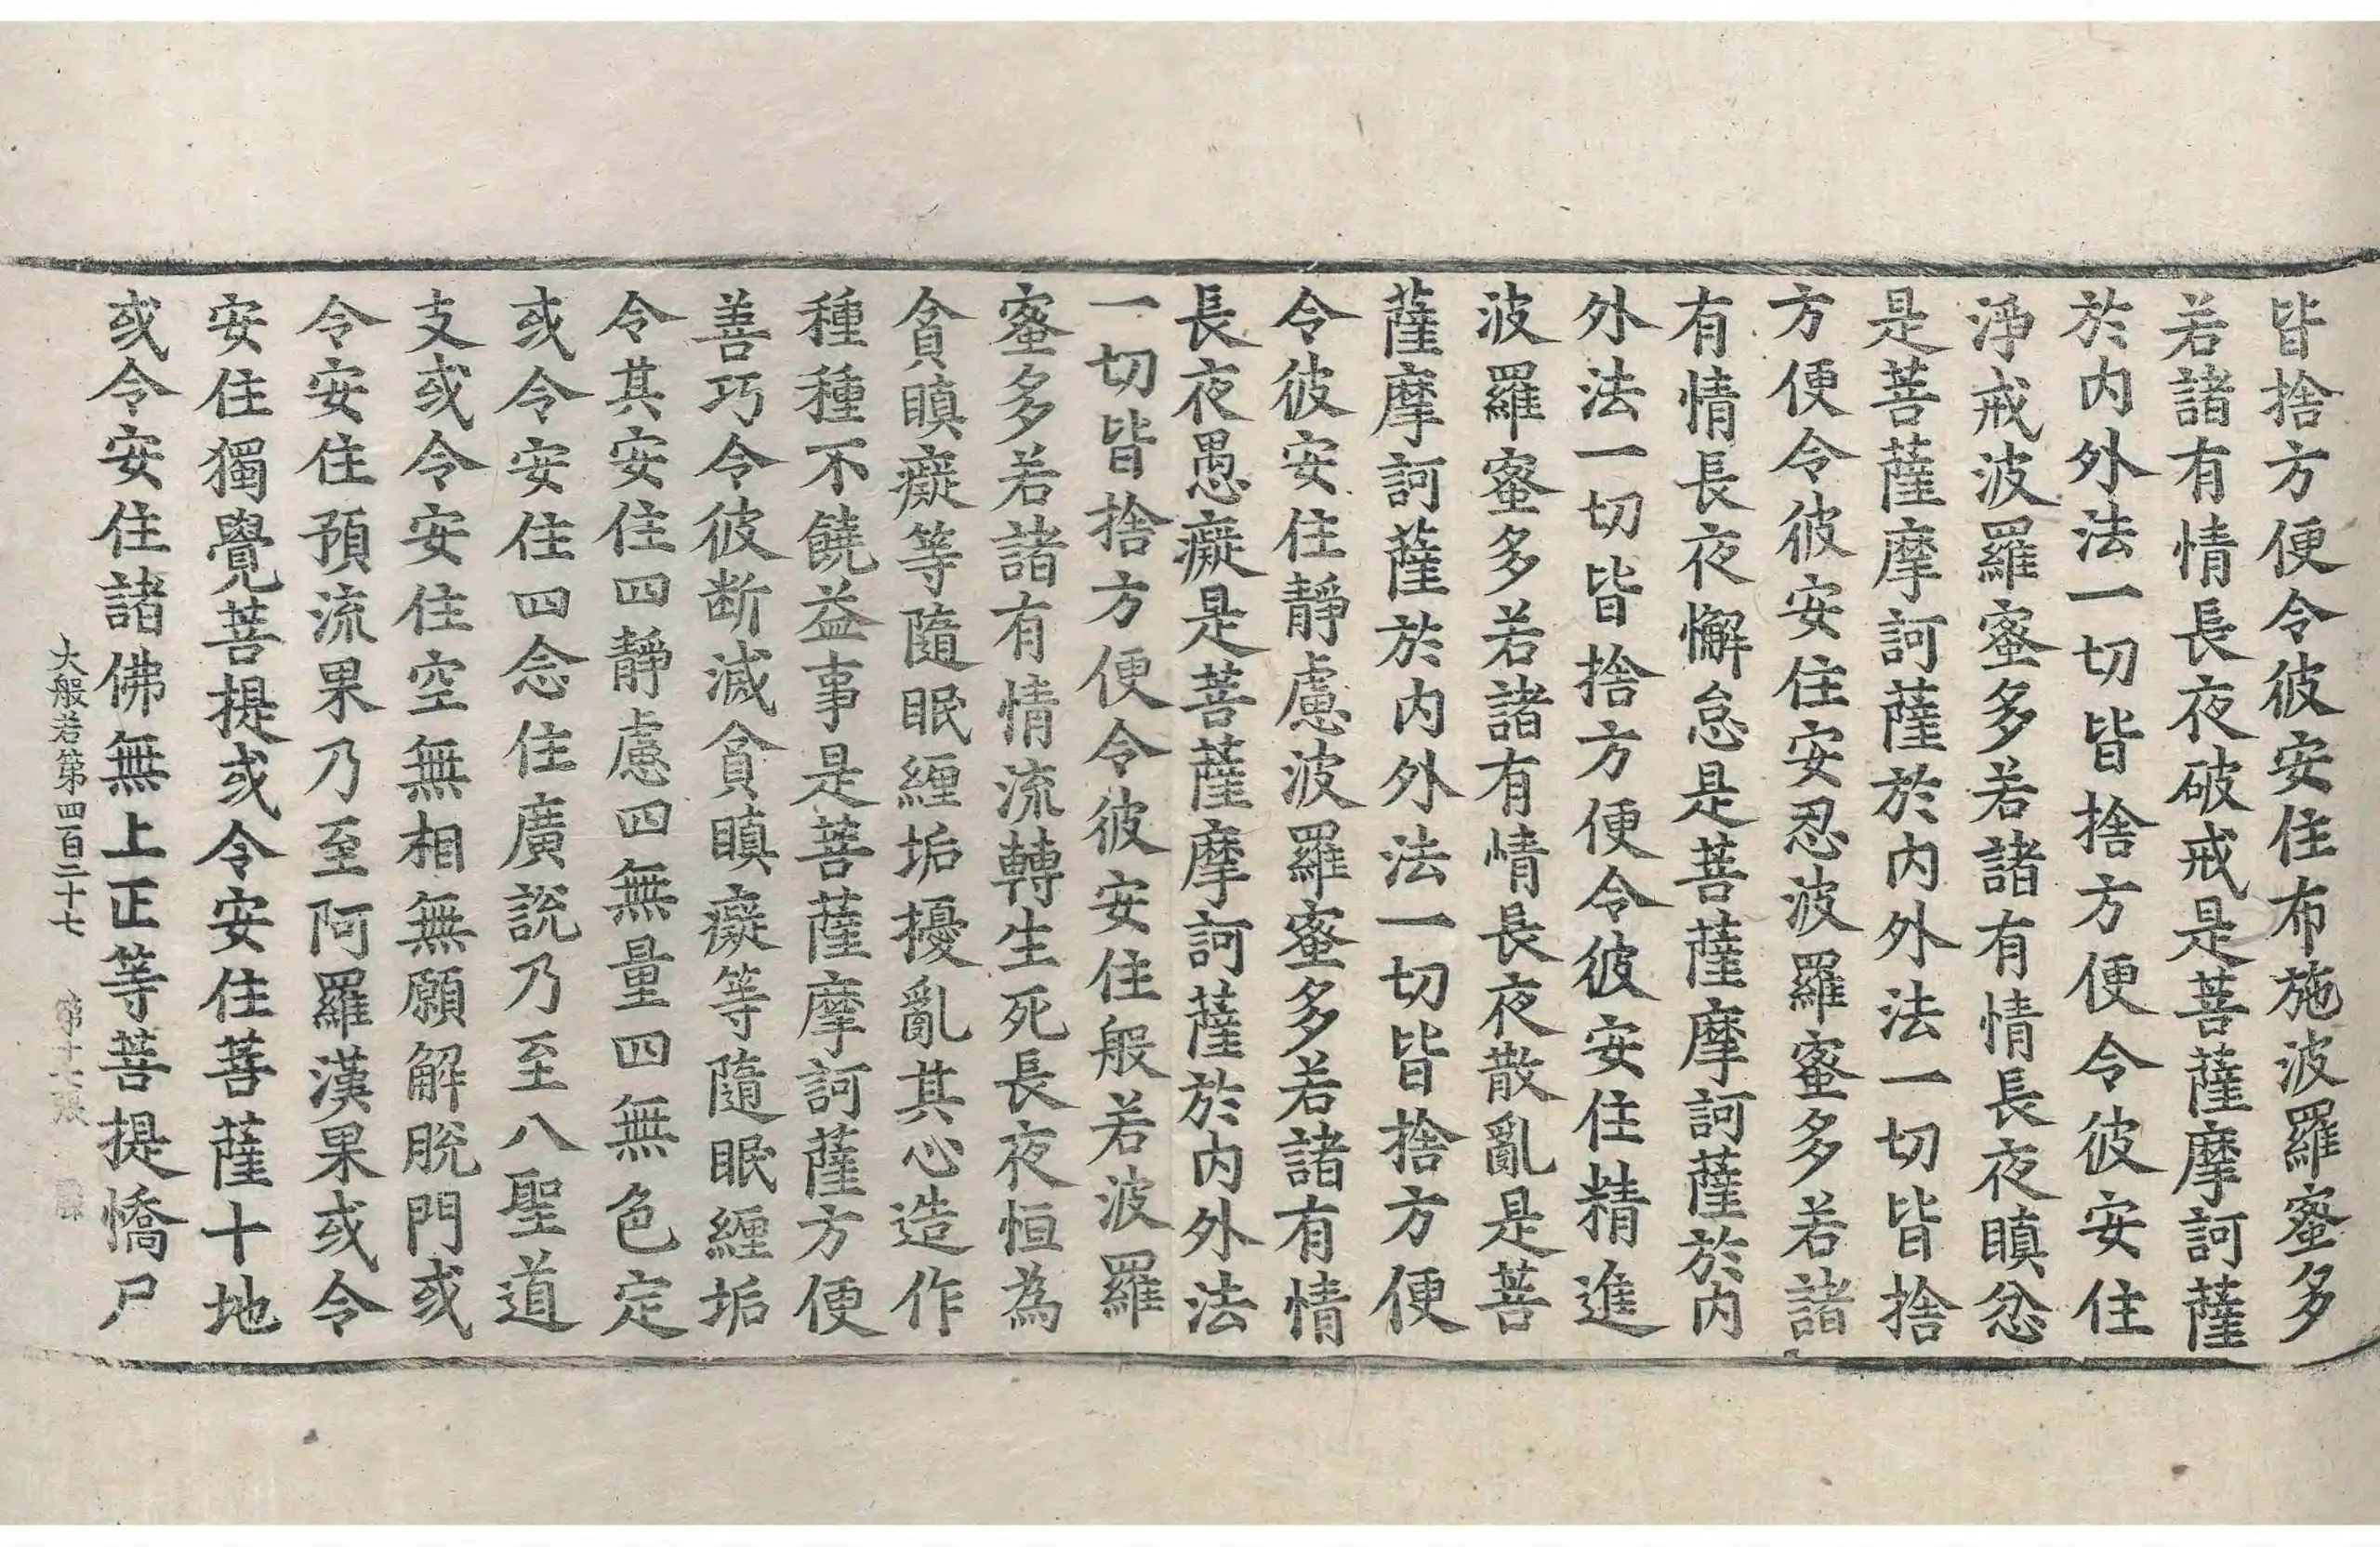 皆捨方便令彼安住布施波羅蜜多
若諸有情長夜破戒是菩薩摩訶薩
於内外法一切皆捨方便令彼安住
淨戒波羅蜜多若諸有情長夜瞋忿
是菩薩摩訶薩於内外法一切皆捨
方便令彼安住安忍波羅蜜多若諸
有情長夜懈怠是菩薩摩訶薩於内
外法一切皆捨方便令彼安住精進
波羅蜜多若諸有情長夜散亂是菩
薩摩訶薩於内外法一切皆捨方便
令彼安住靜慮波羅蜜多若諸有情
長夜愚癡是菩薩摩訶薩於内外法
一切皆捨方便令彼安住般若波羅
蜜多若諸有情流轉生死長夜恒為
貪瞋癡等隨眠纏垢擾亂其心造作
種種不饒益事是菩薩摩訶薩方便
善巧令彼断滅貪瞋癡等隨眠纏垢
令其安住四靜慮四無量四無色定
或令安住四念住廣說乃至八聖道
支或令安住空無相無願解脫門或
令安住預流果乃至阿羅漢果或令
安住獨覺菩提或令安住菩薩十地
或令安住諸佛無上正等菩提憍尸
大般若第四百二十七 第十六張